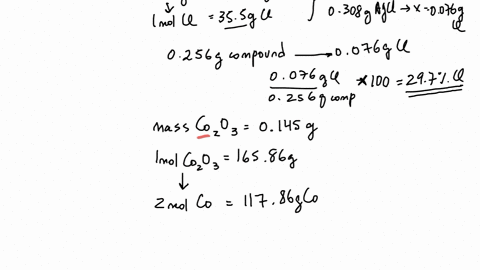 1mol Cl = 35.5g Cl
0.308g AgCl → x=0.076g Cl
0.256g compound → 0.076g Cl
0.076g Cl / 0.256g comp *100 = 29.7% Cl
mass Co₂O₃ = 0.145 g
1mol Co₂O₃ = 165.86g
↓
2mol Co = 117.86g Co